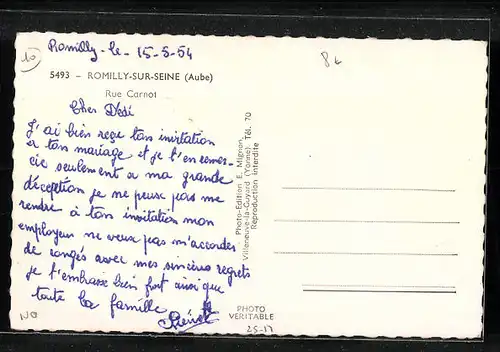 Romilly-le- 15-5-54
5493 – ROMILLY-SUR-SEINE (Aube)
Rue Carnot
Cher Dédé
J'ai bien reçu ton invitation
a ton mariage et je t'en remer-
cie seulement a ma grande
déception je ne peux pas me
rendre à ton invitation mon
employeur ne veux pas m'accorder
de congés avec mes sincères regrets
je t'embrasse bien fort ainsi que
toute la famille
Photo-Edition E. Mignon
Villeneuve-la-Guyard (Yonne) Tél. 70
Reproduction interdite
PHOTO
VERITABLE
25-17